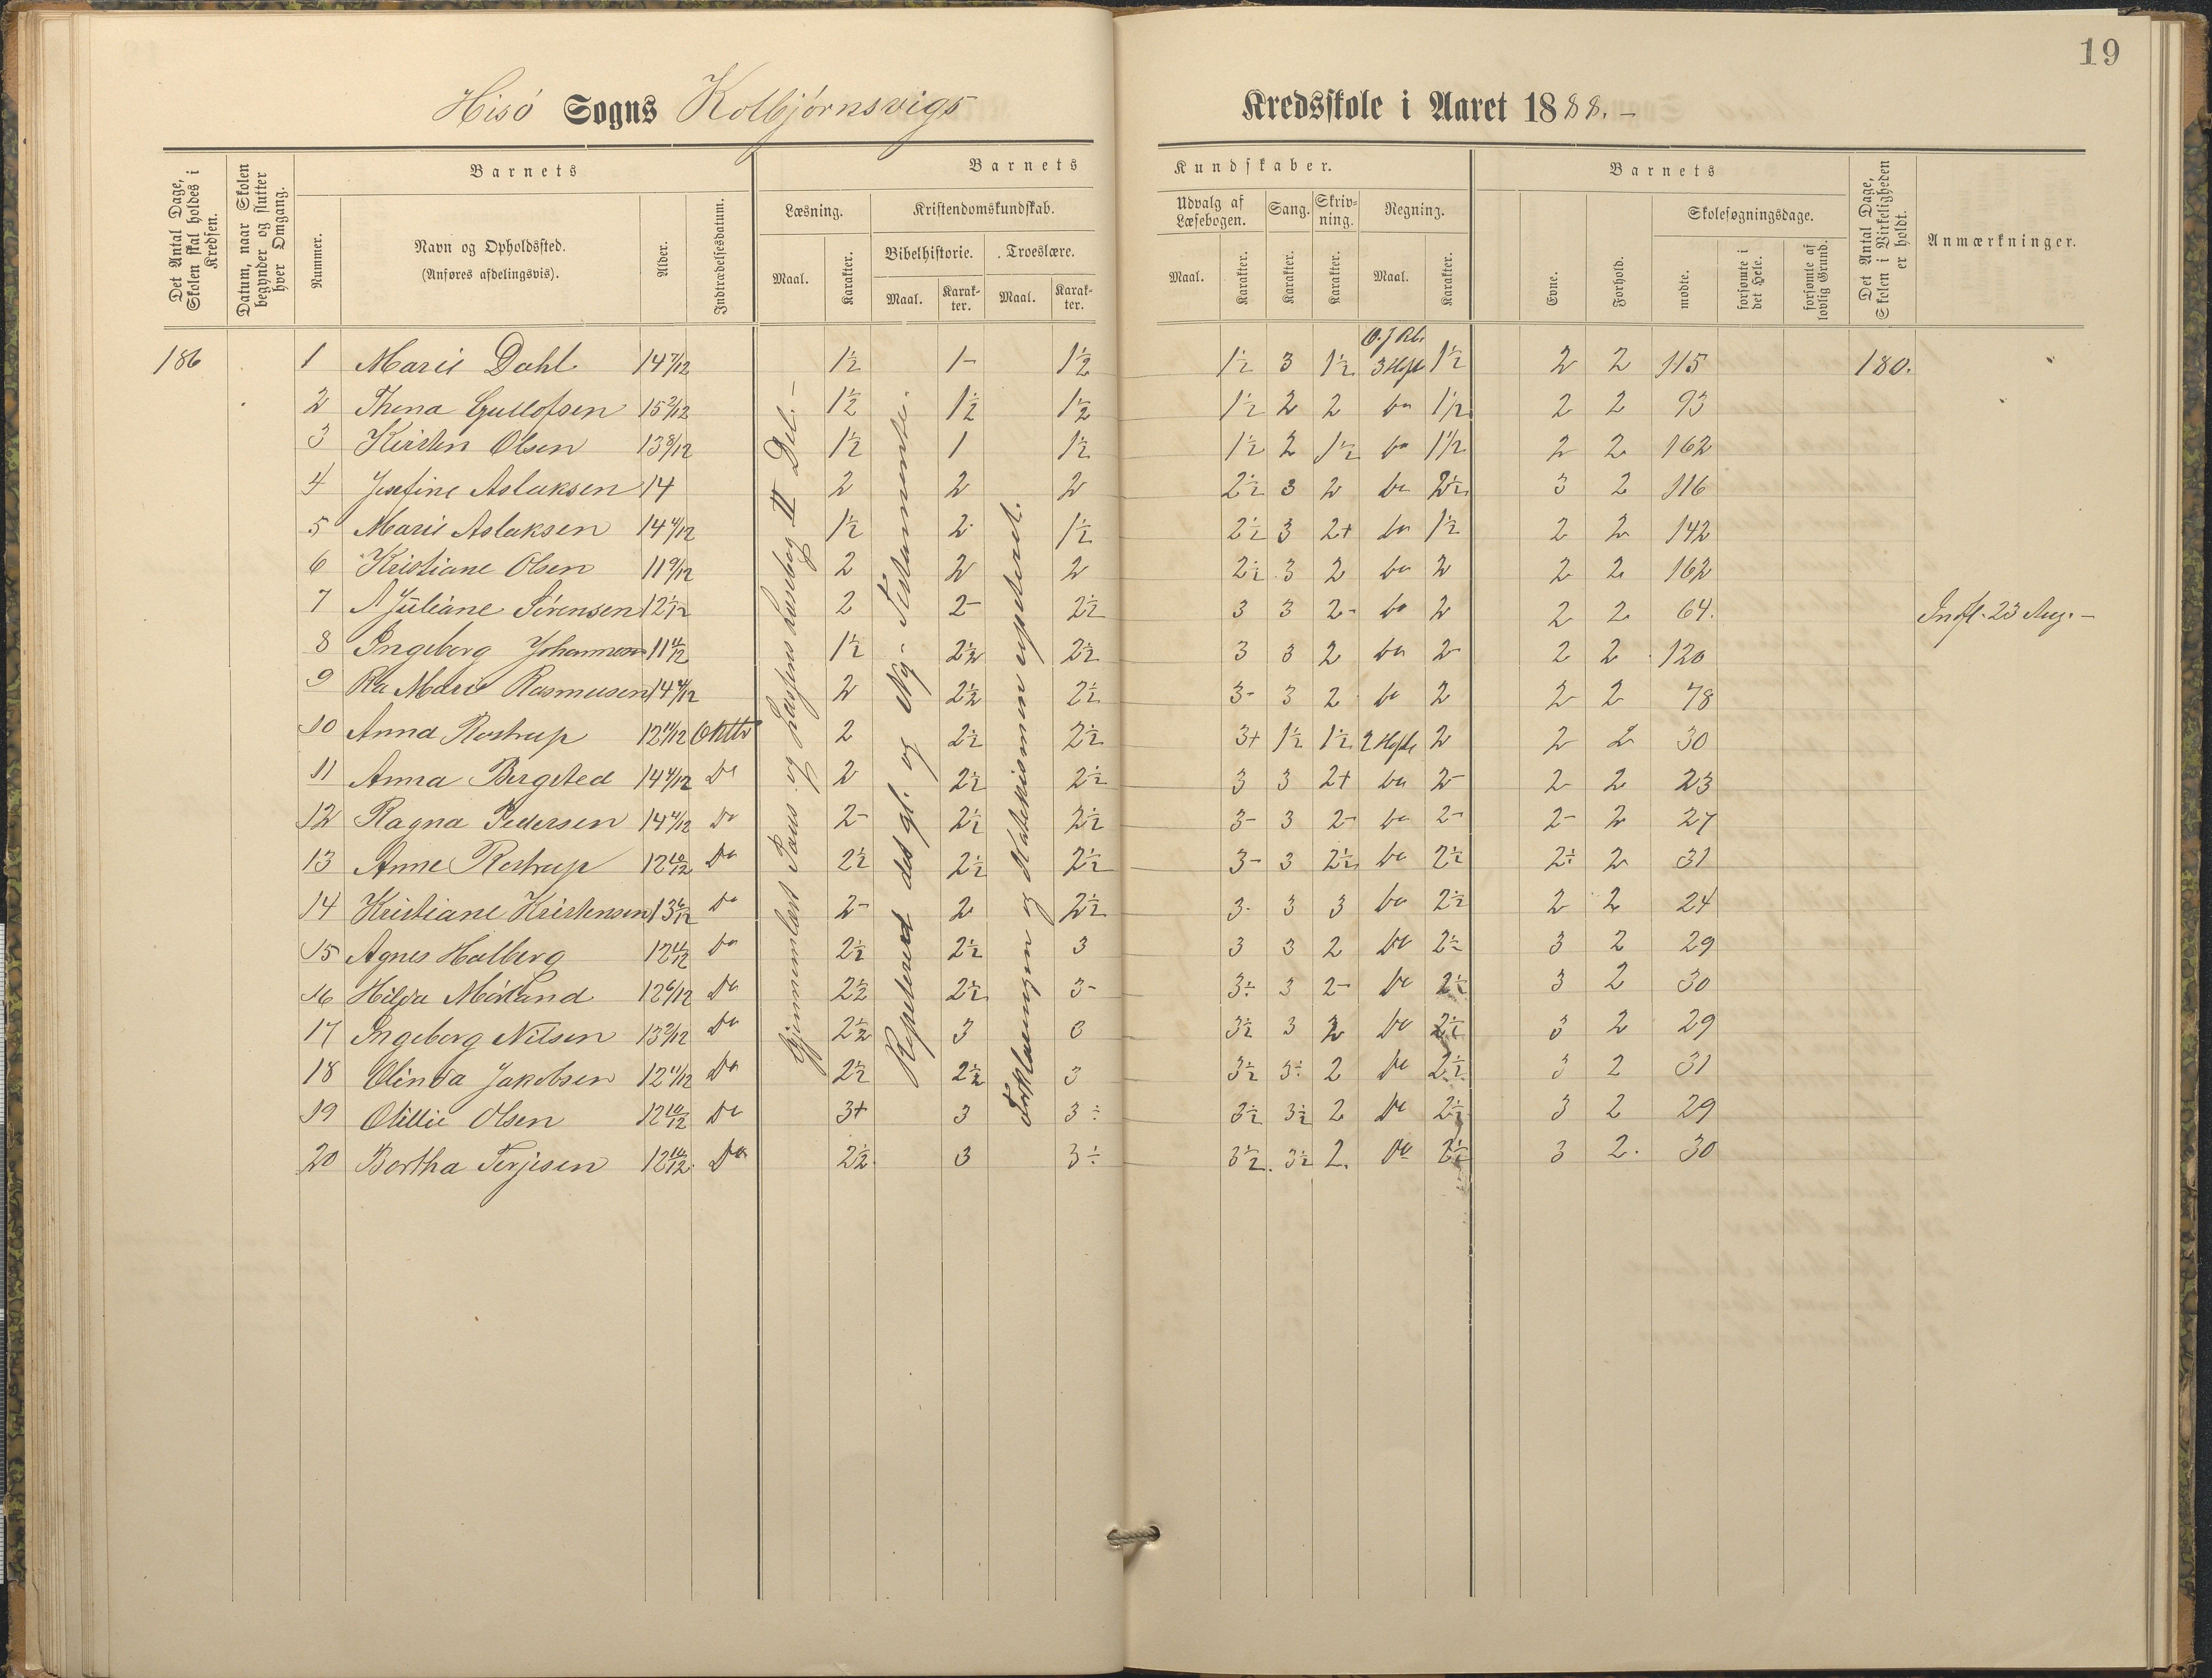 19
Hisö Sogns Kolbjørnsvigs Kredsskole i Aaret 1888.-
Det Antal Dage, Skolen skal holdes i Kredsen.
Datum, naar Skolen begynder og slutter hver Omgang.
Barnets
Nummer.
Navn og Opholdssted. (Anføres afdelingsvis).
Alder.
Indtrædelsesdatum.
Barnets Kundskaber.
Læsning.
Maal. Karakter.
Kristendomskundskab.
Bibelhistorie. Troeslære.
Maal. Karakter. Maal. Karakter.
Udvalg af Læsebogen. Sang. Skrivning. Regning.
Maal. Karakter. Karakter. Karakter. Maal. Karakter.
Barnets
Evne. Forhold.
Skolesøgningsdage.
mødte. forsømte i det Hele. forsømte af lovlig Grund.
Det Antal Dage, Skolen i Virkeligheden er holdt.
Anmærkninger.
Gjennemlæst Paus og Lassens Læsebog II Del.-
Repeteret det gl. og Ny- Testamente.
Forklaringen og Katekismen repeteret.
186 1 Marie Dahl 14 7/12 1½ 1- 1½ 1½ 3 1½ 3 Hefte 1½ 2 2 115 180.
2 Thina Gullofsen 15 2/12 1½ 1½ 1½ 1½ 2 2 do 1½ 2 2 93
3 Kirsten Olsen 13 8/12 1½ 1 1½ 1½ 2 1½ do 1½ 2 2 162
4 Josefine Aslaksen 14 2 2 2 2½ 3 2 do 2½ 3 2 116
5 Marie Aslaksen 14 4/12 1½ 2 1½ 2½ 3 2+ do 1½ 2 2 142
6 Kristiane Olsen 11 9/12 2 2 2 2½ 3 2 do 2 2 2 162
7 A Juliane Sørensen 12 1/12 2 2- 2½ 3 3 2- do 2 2 2 64. Indfl. 23 Aug.-
8 Ingeborg Johannesen 11 11/12 1½ 2½ 2½ 3 3 2 do 2- 2 2 120
9 Ka Marie Rasmussen 14 4/12 2 2½ 2½ 3- 3 2 do 2 2 2 78
10 Anna Rostrup 12 11/12 Oktbr 2 2½ 2½ 3+ 1½ 1½ 2 Hefte 2 2 2 30
11 Anna Bergsted 14 4/12 Do 2 2½ 2½ 3 3 2+ do 2- 2 2 23
12 Ragna Pedersen 14 4/12 Do 2- 2½ 2½ 3- 3 2- do 2- 2- 2 27
13 Anne Rostrup 12 10/12 Do 2½ 2½ 2½ 3- 3 2½ do 2½ 2÷ 2 31
14 Kristiane Kristensen 13 6/12 Do 2- 2 2½ 3- 3 3 do 2½ 2 2 24
15 Agnes Holberg 12 11/12 Do 2½ 2½ 3 3 3 2 do 2½ 3 2 29
16 Hilda Mörland 12 6/12 Do 2½ 2½ 3- 3÷ 3 2- Do 2½ 3 2 30
17 Ingeborg Nilsen 13 2/12 Do 2½ 3 3 3½ 3 2 Do 2½ 3 2 29
18 Olinda Jakobsen 12 11/12 Do 2½ 2½ 3 3½ 3÷ 2 Do 2½ 3 2 31
19 Otillie Olsen 12 10/12 Do 3+ 3 3÷ 3½ 3½ 2 Do 2½ 3 2 29
20 Bertha Terjesen 12 10/12 Do 2½ 3 3÷ 3½ 3½ 2. Do 2½ 3 2. 30